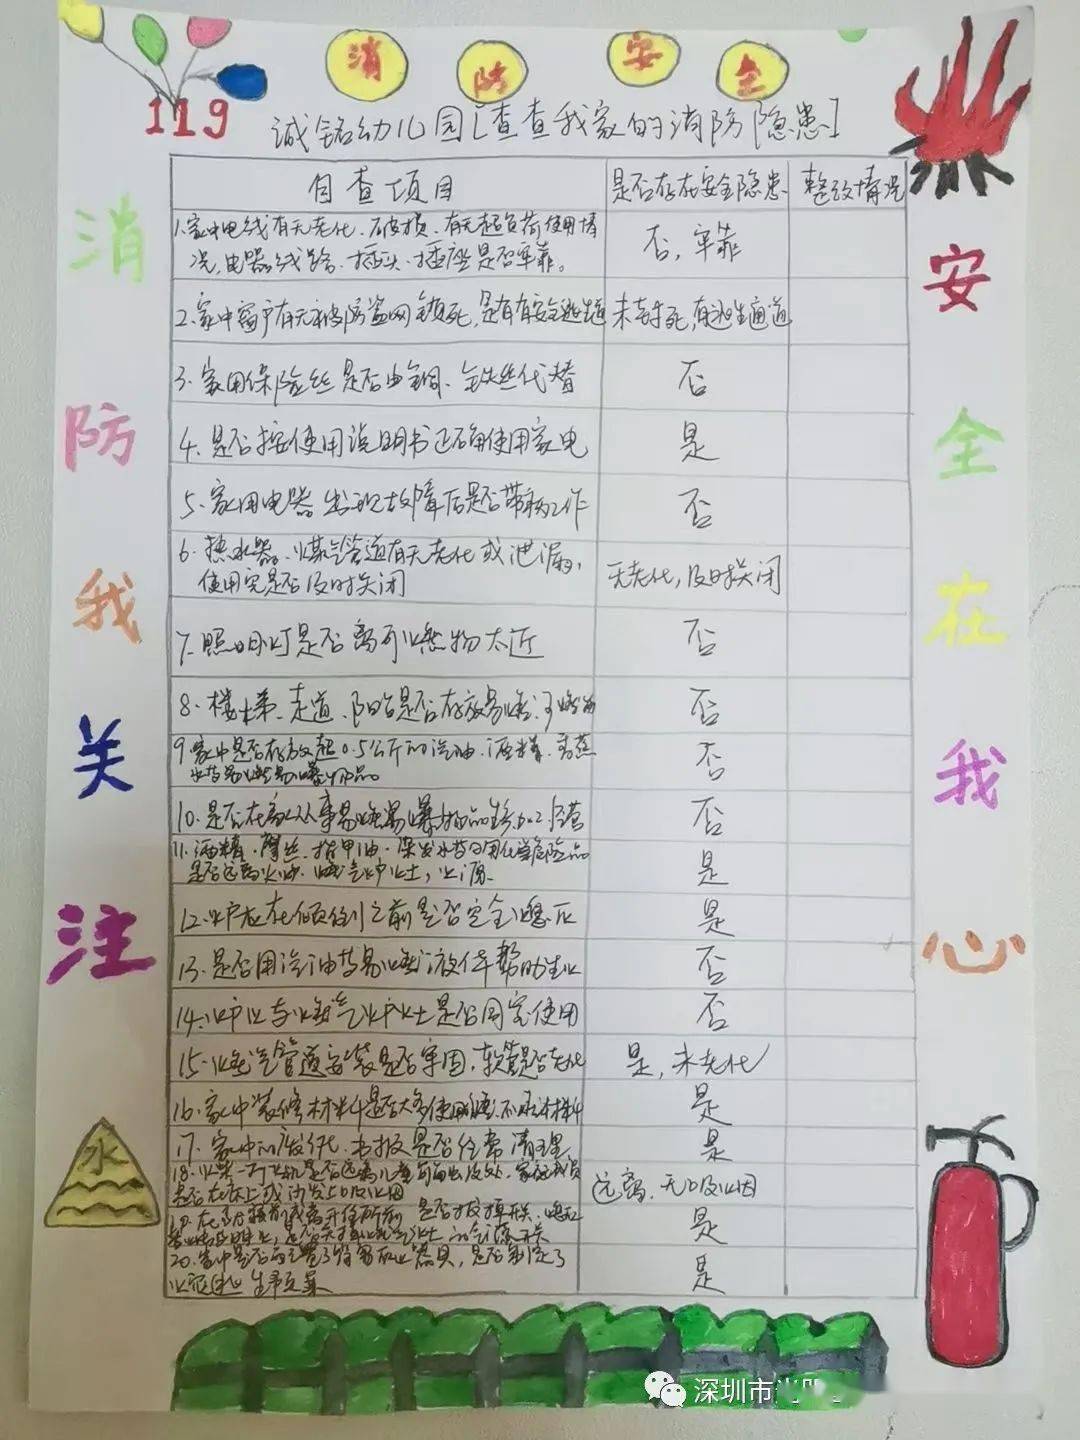 消 防 安 全
119
诚铭幼儿园[查查我家的消防隐患]
自查项目 是否存在安全隐患 整改情况
1.家中电线有无老化、破损、有无超负荷使用情
况,电器线路、插头、插座是否牢靠。
否,牢靠
2.家中窗户有无被防盗网锁死,是否有安全逃生通
未锁死,有逃生通道
3.家用保险丝是否由铜、铁丝代替 否
4.是否按使用说明书正确使用家电 是
5.家用电器出现故障后是否带病工作 否
6.热水器、煤气管道有无老化或泄漏,
使用完是否及时关闭
无老化,及时关闭
7.照明灯是否离可燃物太近 否
8.楼梯、走道、阳台是否存放易燃、可燃物 否
9.家中是否存放超0.5公斤的汽油、酒精、香蕉
水等易燃易爆物品
否
10.是否在家从事易燃易爆物品生产加工经营 否
11.酒精、摩丝、指甲油、染发水等日用化学危险品
是否远离火炉、燃气炉灶,火源
是
12.炉灰在倾倒之前是否完全熄灭 是
13.是否用汽油等易燃液体帮助生火 否
14.炉火与燃气炉灶是否同室使用 否
15.燃气管道安装是否牢固,软管是否老化 是,未老化
16.家中装修材料是否大多使用难燃、不燃材料 是
17.家中的废纸、书报是否经常清理 是
18.火柴、打火机是否远离儿童
是否在床上或沙发上吸烟
远离、无吸烟
是
20.家中是否配置了简易灭火器具,是否制定了
火灾逃生
是
消
防
我
关
注
安
全
在
我
心
水
深圳市